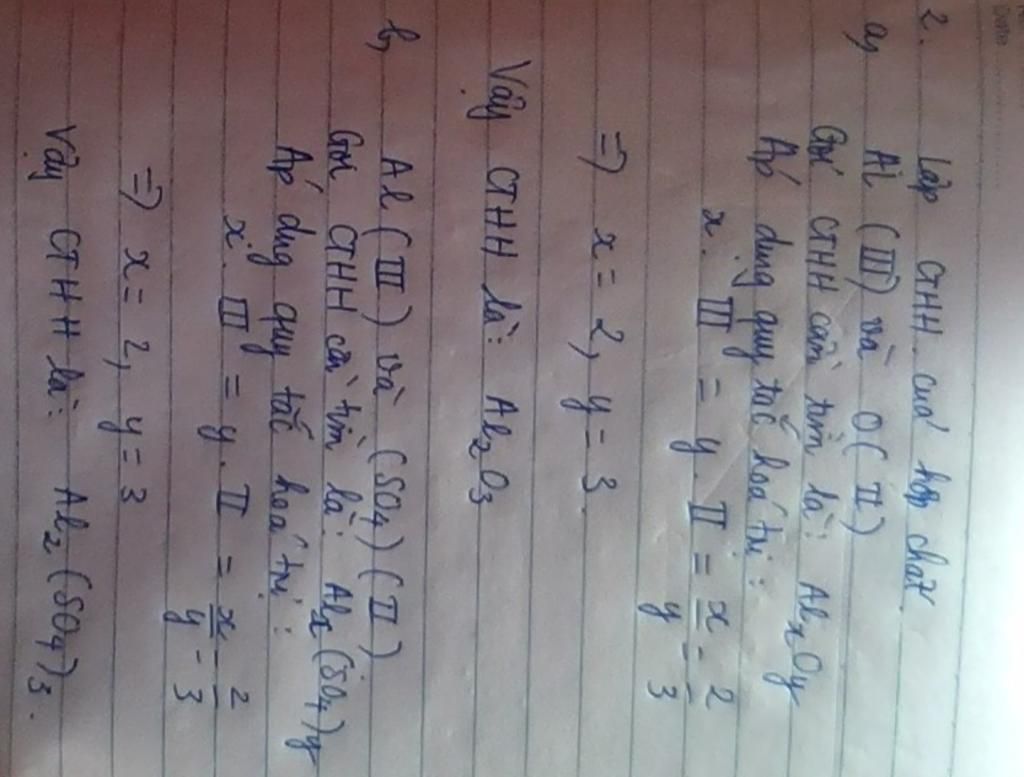 Date
2. Lập CTHH của hợp chất
a, Al (III) và O(II)
Gọi CTHH cần tìm là: AlxOy
Áp dụng quy tắc hoá trị:
x. III = y. II = x/y = 2/3
=> x = 2, y = 3
Vậy CTHH là: Al₂O₃
b, Al (III) và (SO₄) (II)
Gọi CTHH cần tìm là: Alx(SO₄)y
Áp dụng quy tắc hoá trị:
x. III = y. II = x/y = 2/3
=> x = 2, y = 3
Vậy CTHH là: Al₂(SO₄)₃.